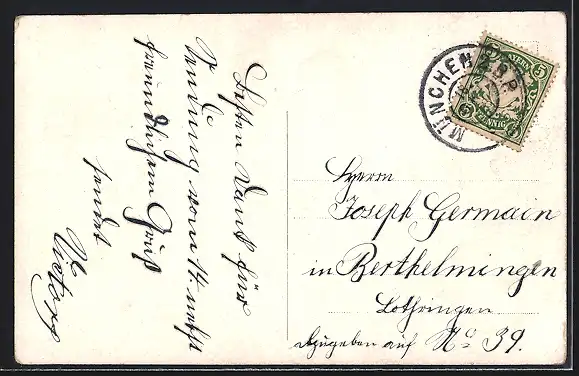 Besten Dank für
Sendung vom 14. nebst
freundlichem Gruß
sendet
Victor
Herrn
Joseph Germain
in Berthelmingen
Lothringen
Abzugeben auf No 39.
MÜNCHEN
BAYERN
5 5
5 5
PFENNIG